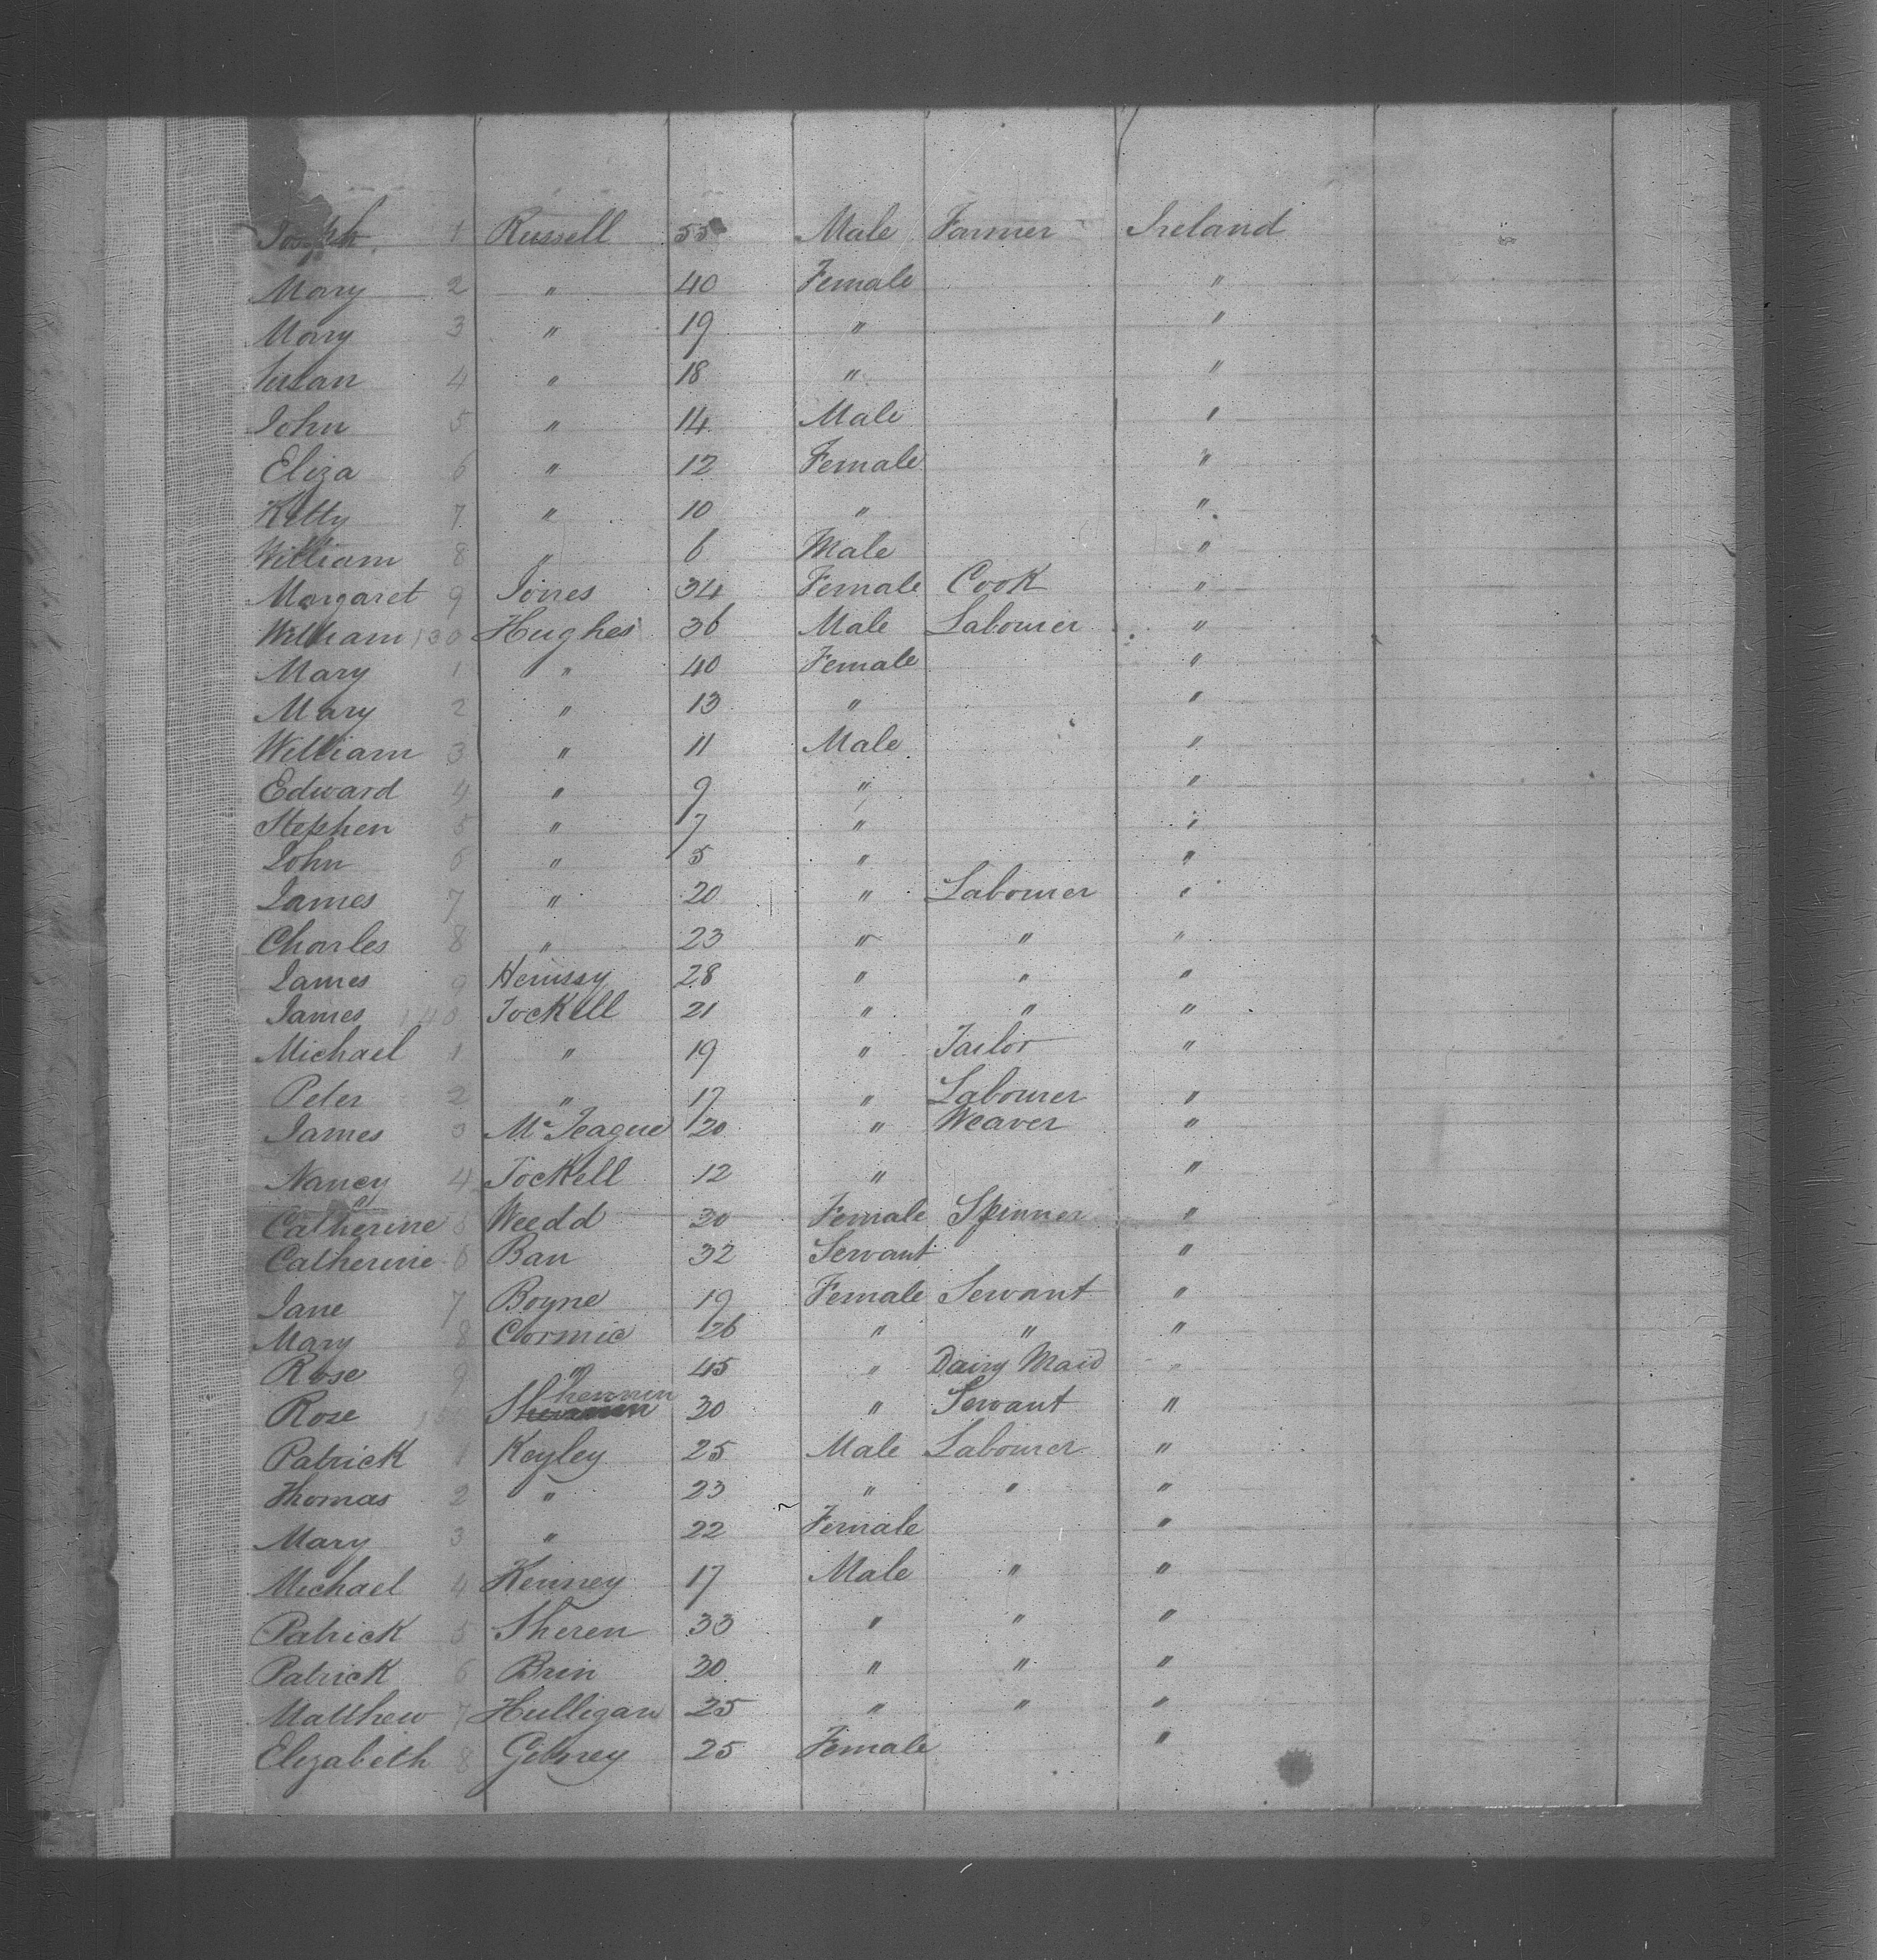 Joseph 1 Russell 55 Male Farmer Ireland
Mary 2 " 40 Female "
Mary 3 " 19 " "
Susan 4 " 18 " "
John 5 " 14 Male "
Eliza 6 " 12 Female "
Kitty 7 " 10 " "
William 8 " 6 Male "
Margaret 9 Jones 34 Female Cook "
William 130 Hughes 36 Male Labourer "
Mary 1 " 40 Female "
Mary 2 " 13 " "
William 3 " 11 Male "
Edward 4 " 9 " "
Stephen 5 " 7 " "
John 6 " 5 " "
James 7 " 20 " Labourer "
Charles 8 " 23 " " "
James 9 Henissy 28 " " "
James 140 Tockell 21 " " "
Michael 1 " 19 " Tailor "
Peter 2 " 17 " Labourer "
James 3 McTeague 20 " Weaver "
Nancy 4 Tockell 12 " "
Catherine 5 Weedd 30 Female Spinner "
Catherine 6 Ban 32 Servant "
Jane 7 Boyne 19 Female Servant "
Mary 8 Cormic 26 " " "
Rose 9 " 45 " Dairy Maid "
Rose 150 30 " Servant "
Patrick 1 Keyley 25 Male Labourer "
Thomas 2 " 23 " " "
Mary 3 " 22 Female "
Michael 4 Kenney 17 Male " "
Patrick 5 Sheren 33 " " "
Patrick 6 Brin 30 " " "
Matthew 7 Hulligan 25 " " "
Elizabeth 8 Gibney 25 Female "